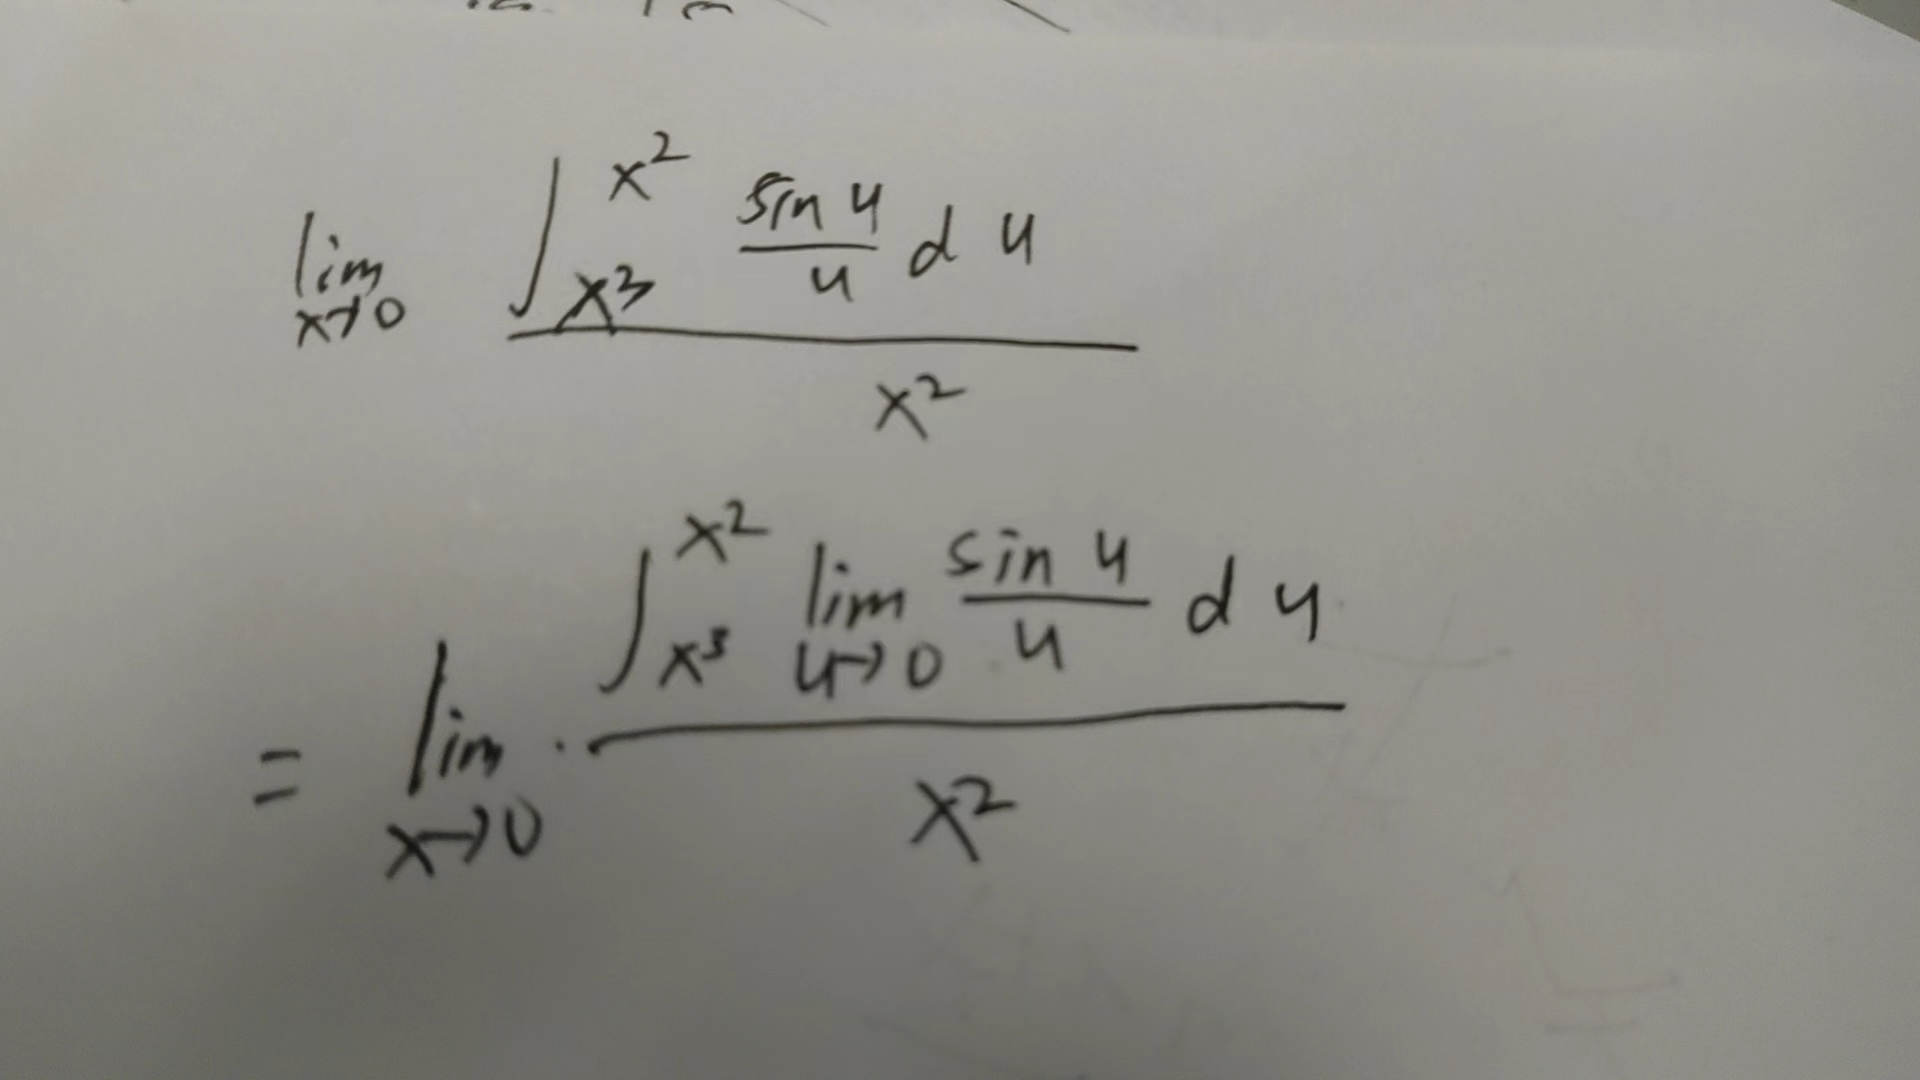 lim x→0 ∫_{x^3}^{x^2} \frac{sin u}{u} d u / x^2
= lim x→0 ∫_{x^3}^{x^2} lim u→0 \frac{sin u}{u} d u / x^2